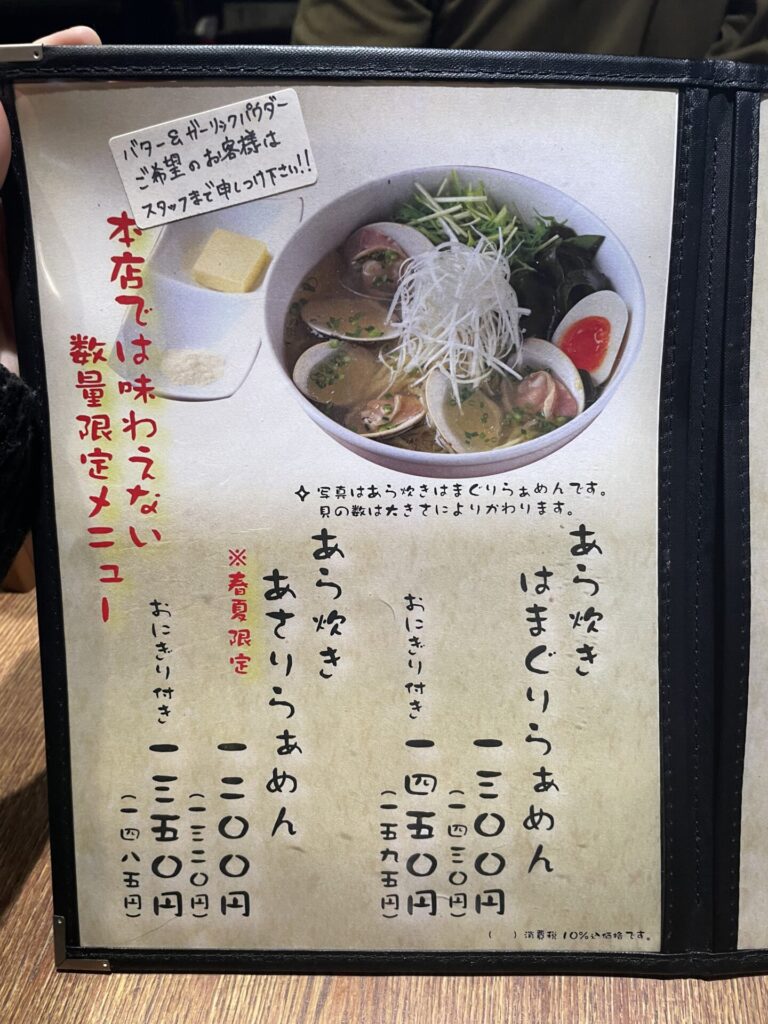 バター&ガーリックパウダー
ご希望のお客様は
スタッフまで申しつけ下さい!!
本店では味わえない
数量限定メニュー
✧写真はあら炊きはまぐりらぁめんです。
貝の数は大きさによりかわります。
あら炊き
はまぐりらぁめん
一三〇〇円
(一四三〇円)
おにぎり付き
一四五〇円
(一五九五円)
あら炊き
あさりらぁめん
※春夏限定
一二〇〇円
(一三二〇円)
おにぎり付き
一三五〇円
(一四八五円)
( )消費税10%込価格です。